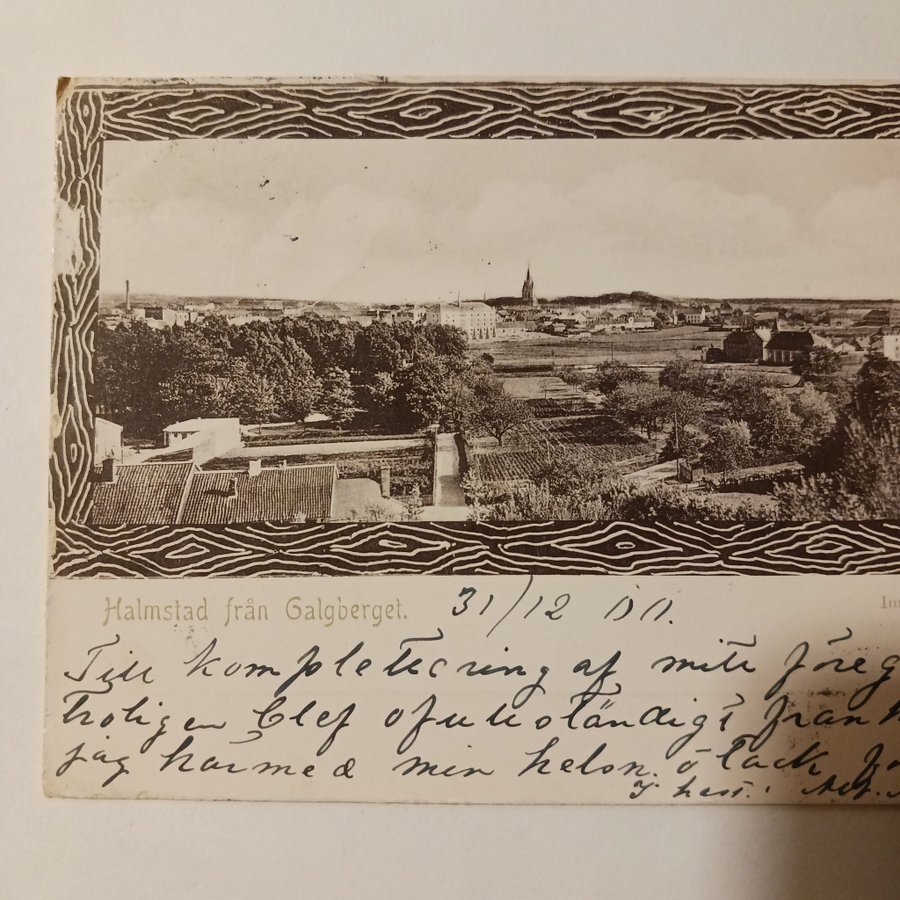 Halmstad från Galgberget. 31/12 00.
Till komplettering af mitt föreg
troligen blef ofullständigt frank
jag härmed min helsn. o tack fö
I hast.